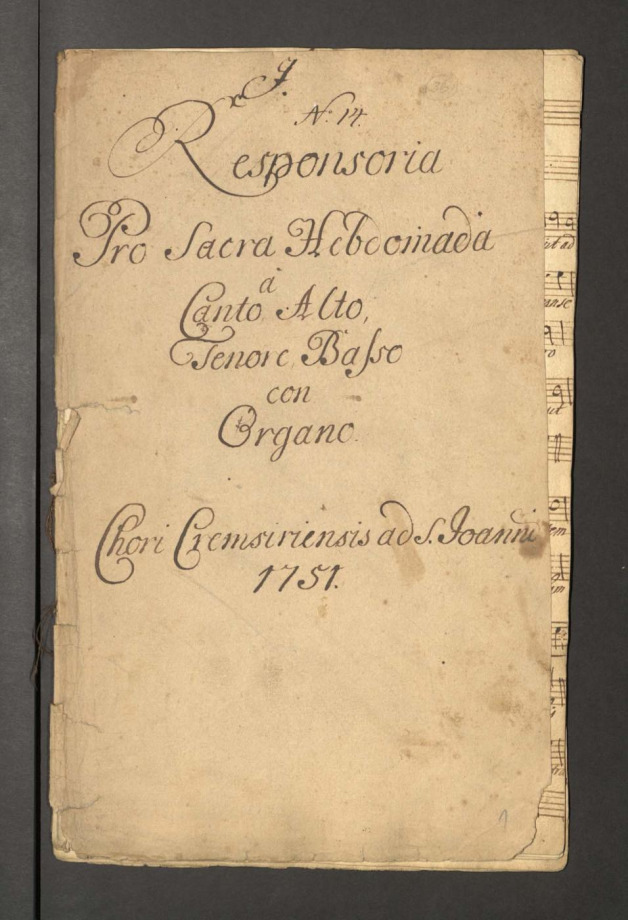 N: 14.
Responsoria
Pro Sacra Hebdomada
à
Canto, Alto,
Tenore, Baſso
con
Organo.
Chori Cremsiriensis ad S. Joanni
1751.
1